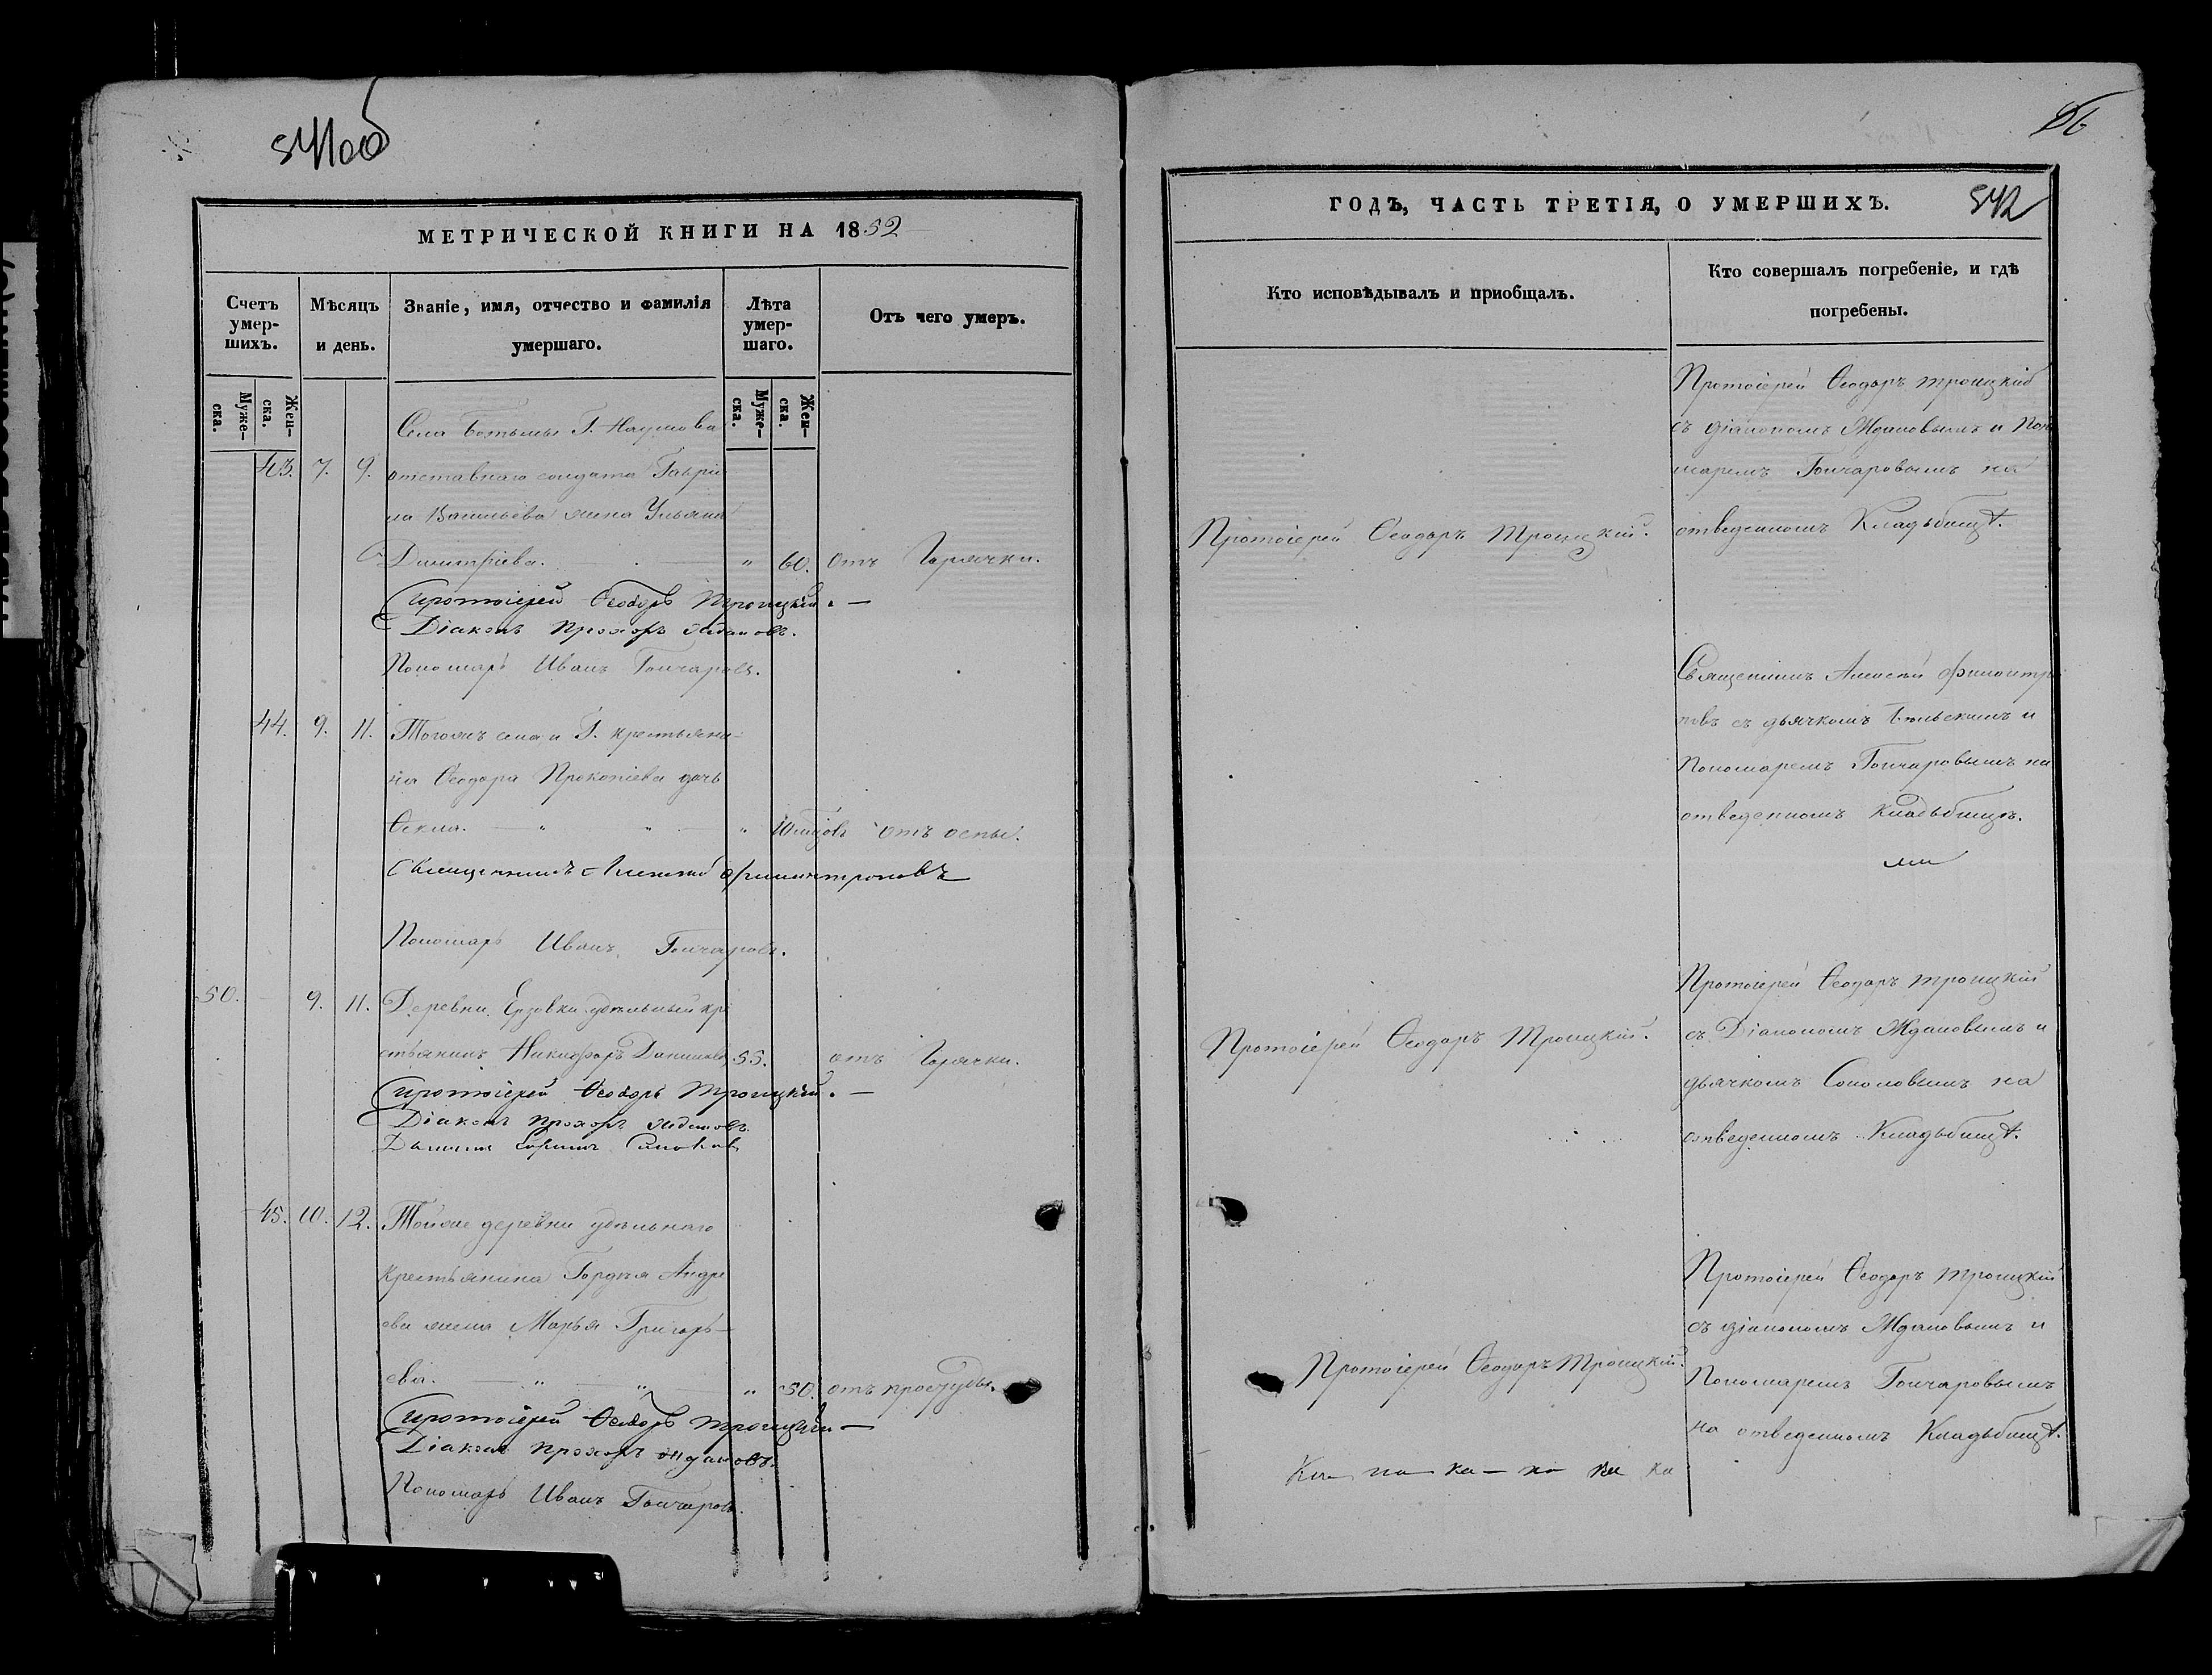 541 об
МЕТРИЧЕСКОЙ КНИГИ НА 1852
Счетъ умер-шихъ.
Мѣсяцъ и день.
Званіе, имя, отчество и фамилія умершаго.
Лѣта умер-шаго.
Отъ чего умеръ.
Муже-ска.
Жен-ска.
Муже-ска.
Жен-ска.
Села Ботьмы Г. Наумова
43. 7. 9. отставнаго солдата Гаврі
ла Васильева жена Ульяна
Димитріева. " 60. отъ Горячки.
Протоіерей Ѳеодоръ Троицкій.
Діаконъ Прохоръ Ждановъ.
Пономарь Иванъ Гончаровъ.
44. 9. 11. Тогожъ села и Г. крестьяни-
на Ѳеодора Прокопіева дочь
Ѳекла. " " " отъ оспы.
Священникъ Алексій Филантроповъ
Пономарь Иванъ Гончаровъ.
50. 9. 11. Деревни Ерзовки удѣльный кре
стьянинъ Никифоръ Данилов 55. отъ Горячки.
Протоіерей Ѳеодоръ Троицкій.
Діаконъ Прохоръ Ждановъ.
45. 10. 12. Тойже деревни удѣльнаго
крестьянина Гордѣя Андре
ева жена Марья Григорь-
ева. " " " 50. отъ простуды.
Протоіерей Ѳеодоръ Троицкій
Діаконъ Прохоръ Ждановъ.
Пономарь Иванъ Гончаровъ.
ГОДЪ, ЧАСТЬ ТРЕТІЯ, О УМЕРШИХЪ. 542
Кто исповѣдывалъ и пріобщалъ.
Кто совершалъ погребеніе, и гдѣ погребены.
Протоіерей Ѳеодоръ Троицкій.
Протоіерей Ѳеодоръ Троицкій
съ діакономъ Ждановымъ и Поно
маремъ Гончаровымъ на
отведенномъ Кладьбищѣ.
Священникъ Алексій Филантро
повъ съ дьячкомъ и
Пономаремъ Гончаровымъ на
отведенномъ кладьбищѣ.
Протоіерей Ѳеодоръ Троицкій.
Протоіерей Ѳеодоръ Троицкій
съ Діакономъ Ждановымъ и
дьячкомъ Соколовымъ на
отведенномъ Кладьбищѣ.
Протоіерей Ѳеодоръ Троицкій.
Протоіерей Ѳеодоръ Троицкій
съ діакономъ Ждановымъ и
Пономаремъ Гончаровымъ
на отведенномъ Кладьбищѣ.